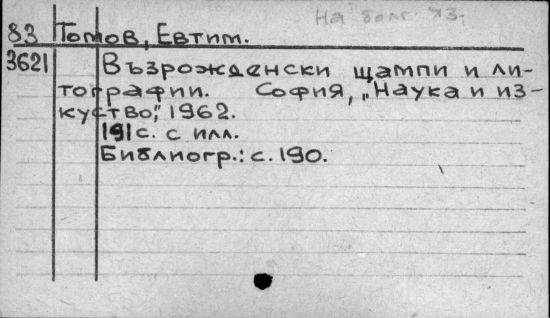 На болг. яз.
83 Томов, Евтим.
3621 Възрожденски щампи и ли-
тографии. София, „Наука и из-
куство", 1962.
191 с. с илл.
Библиогр.: с. 190.